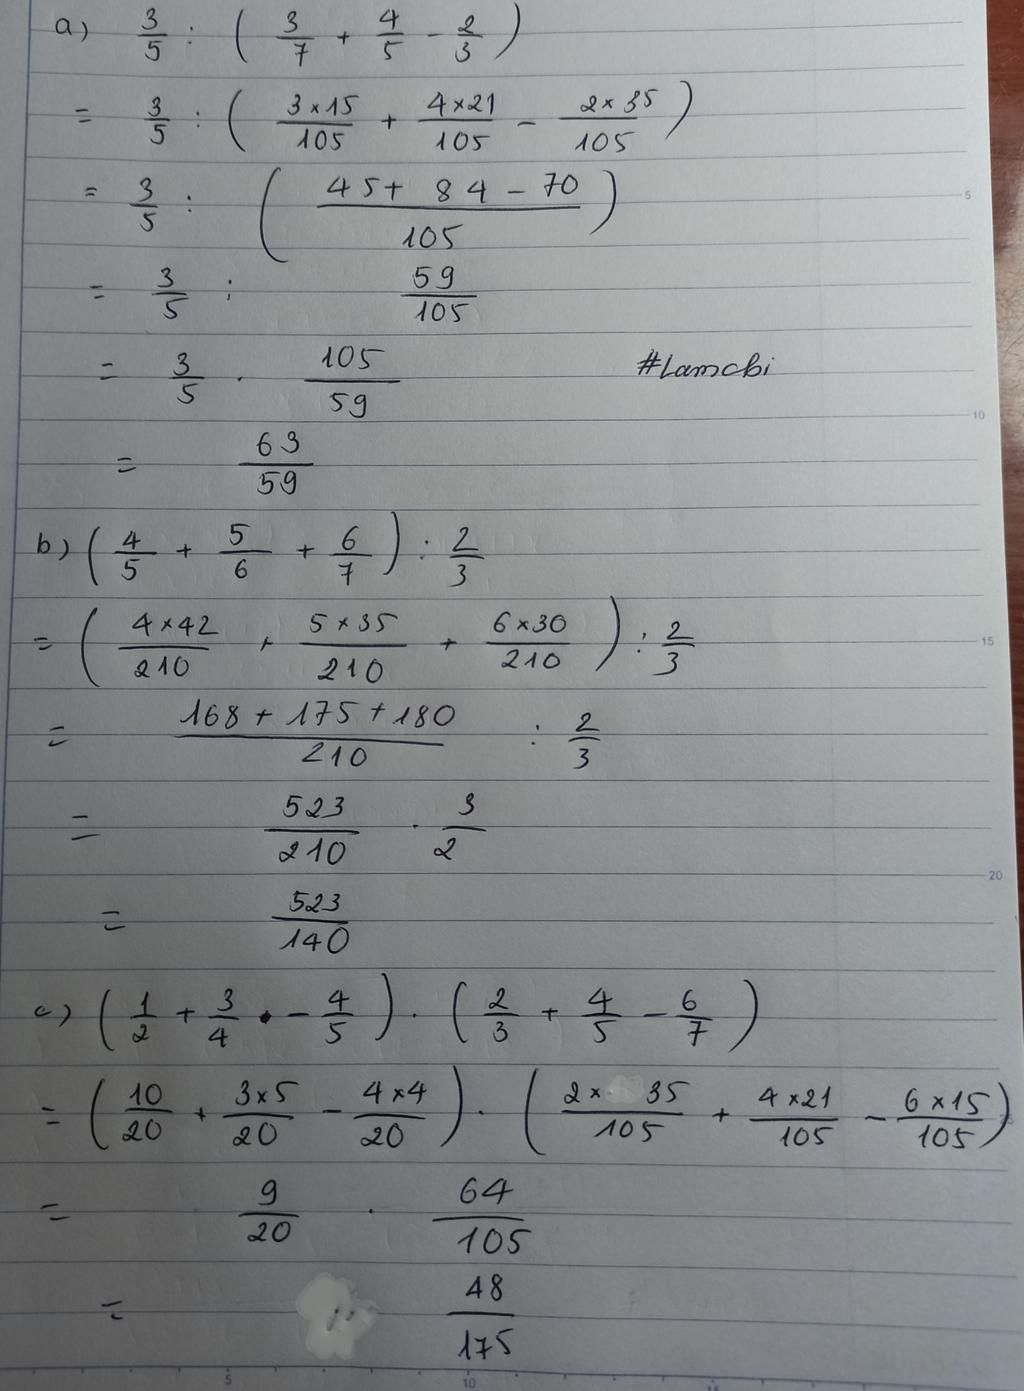 a) 3/5 : ( 3/7 + 4/5 - 2/3 )
= 3/5 : ( 3×15/105 + 4×21/105 - 2×35/105 )
= 3/5 : ( 45+ 84 - 70/105 )
= 3/5 : 59/105
= 3/5 . 105/59 #Lamcbi
= 63/59
b) ( 4/5 + 5/6 + 6/7 ) : 2/3
= ( 4×42/210 + 5×35/210 + 6×30/210 ) : 2/3
= 168 + 175 + 180/210 : 2/3
= 523/210 . 3/2
= 523/140
c) ( 1/2 + 3/4 - 4/5 ) . ( 2/3 + 4/5 - 6/7 )
= ( 10/20 + 3×5/20 - 4×4/20 ) . ( 2× 35/105 + 4×21/105 - 6×15/105 )
= 9/20 . 64/105
= 48/175
5
10
15
20
5 10